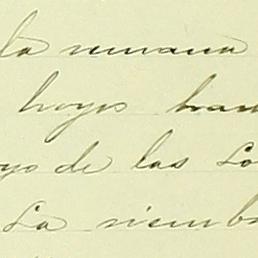 la semana
hoyos han
yo de las Lo
La siembr